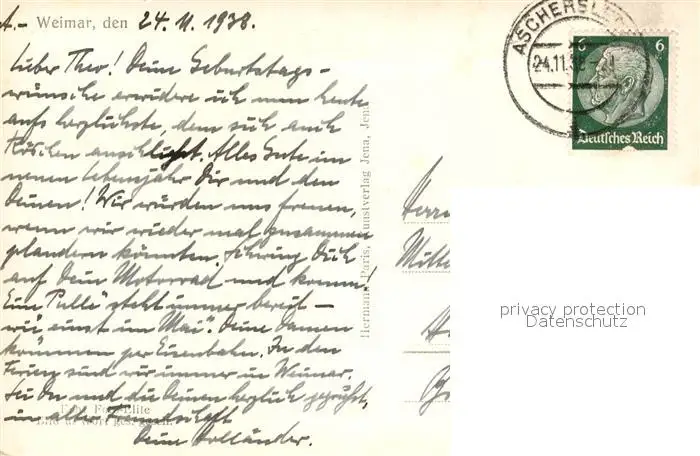 A.- Weimar, den 24.11.1938.
Lieber Theo! Deine Geburtstags-
wünsche erwidere ich nun heute
aufs herzlichste, dem sich auch
Röschen anschließt. Alles Gute im
neuen Lebensjahr Dir und den
Deinen! Wir würden uns freuen,
wenn wir wieder mal zusammen
plaudern könnten. Schwing Dich
auf Dein Motorrad und komm!
Eine "Pulle" steht immer bereit -
"wie einst im Mai". Deine Damen
kommen per Eisenbahn. In den
Ferien sind wir immer in Weimar.
Sei Du und die Deinen herzlich gegrüßt,
in alter Freundschaft
Deine Holländer.
Bild u. Wort ges. gesch.
Hermann Paris, Kunstverlag Jena, Jena
ASCHERSLE
24.11.38
6 6
Deutsches Reich
Herrn
Mitte
privacy protection
Datenschutz